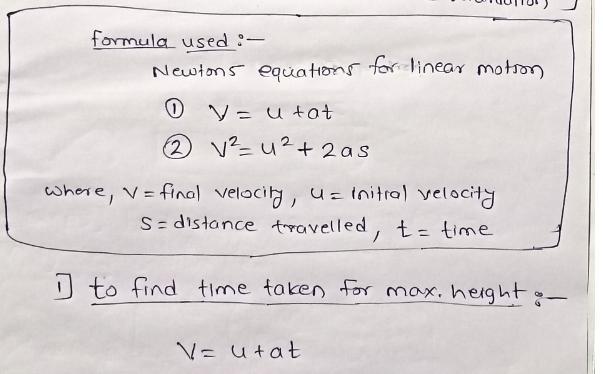 formula used :-
Newtons equations for linear motion
① V = u + at
② V² = u² + 2as
where, V = final velocity, u = initial velocity
S = distance travelled, t = time
1] to find time taken for max. height :-
V = u + at